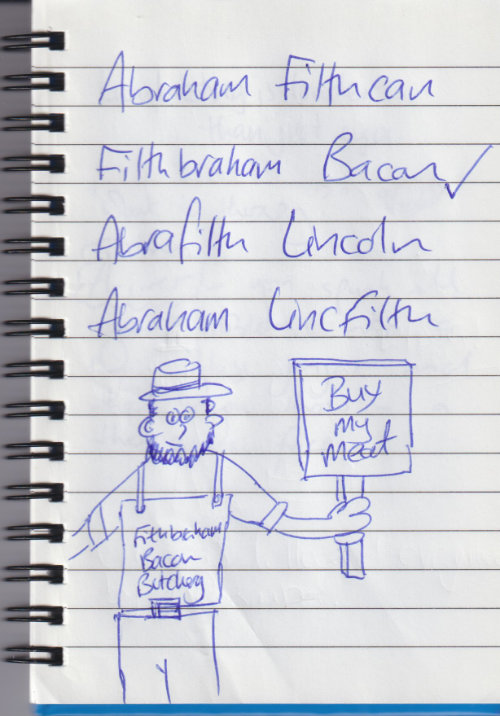 Abraham Filthcan
Filthbraham Bacon ✓
Abrafilth Lincoln
Abraham Lincfilth
Buy
my
meat
Filthbraham
Bacon
Butchery